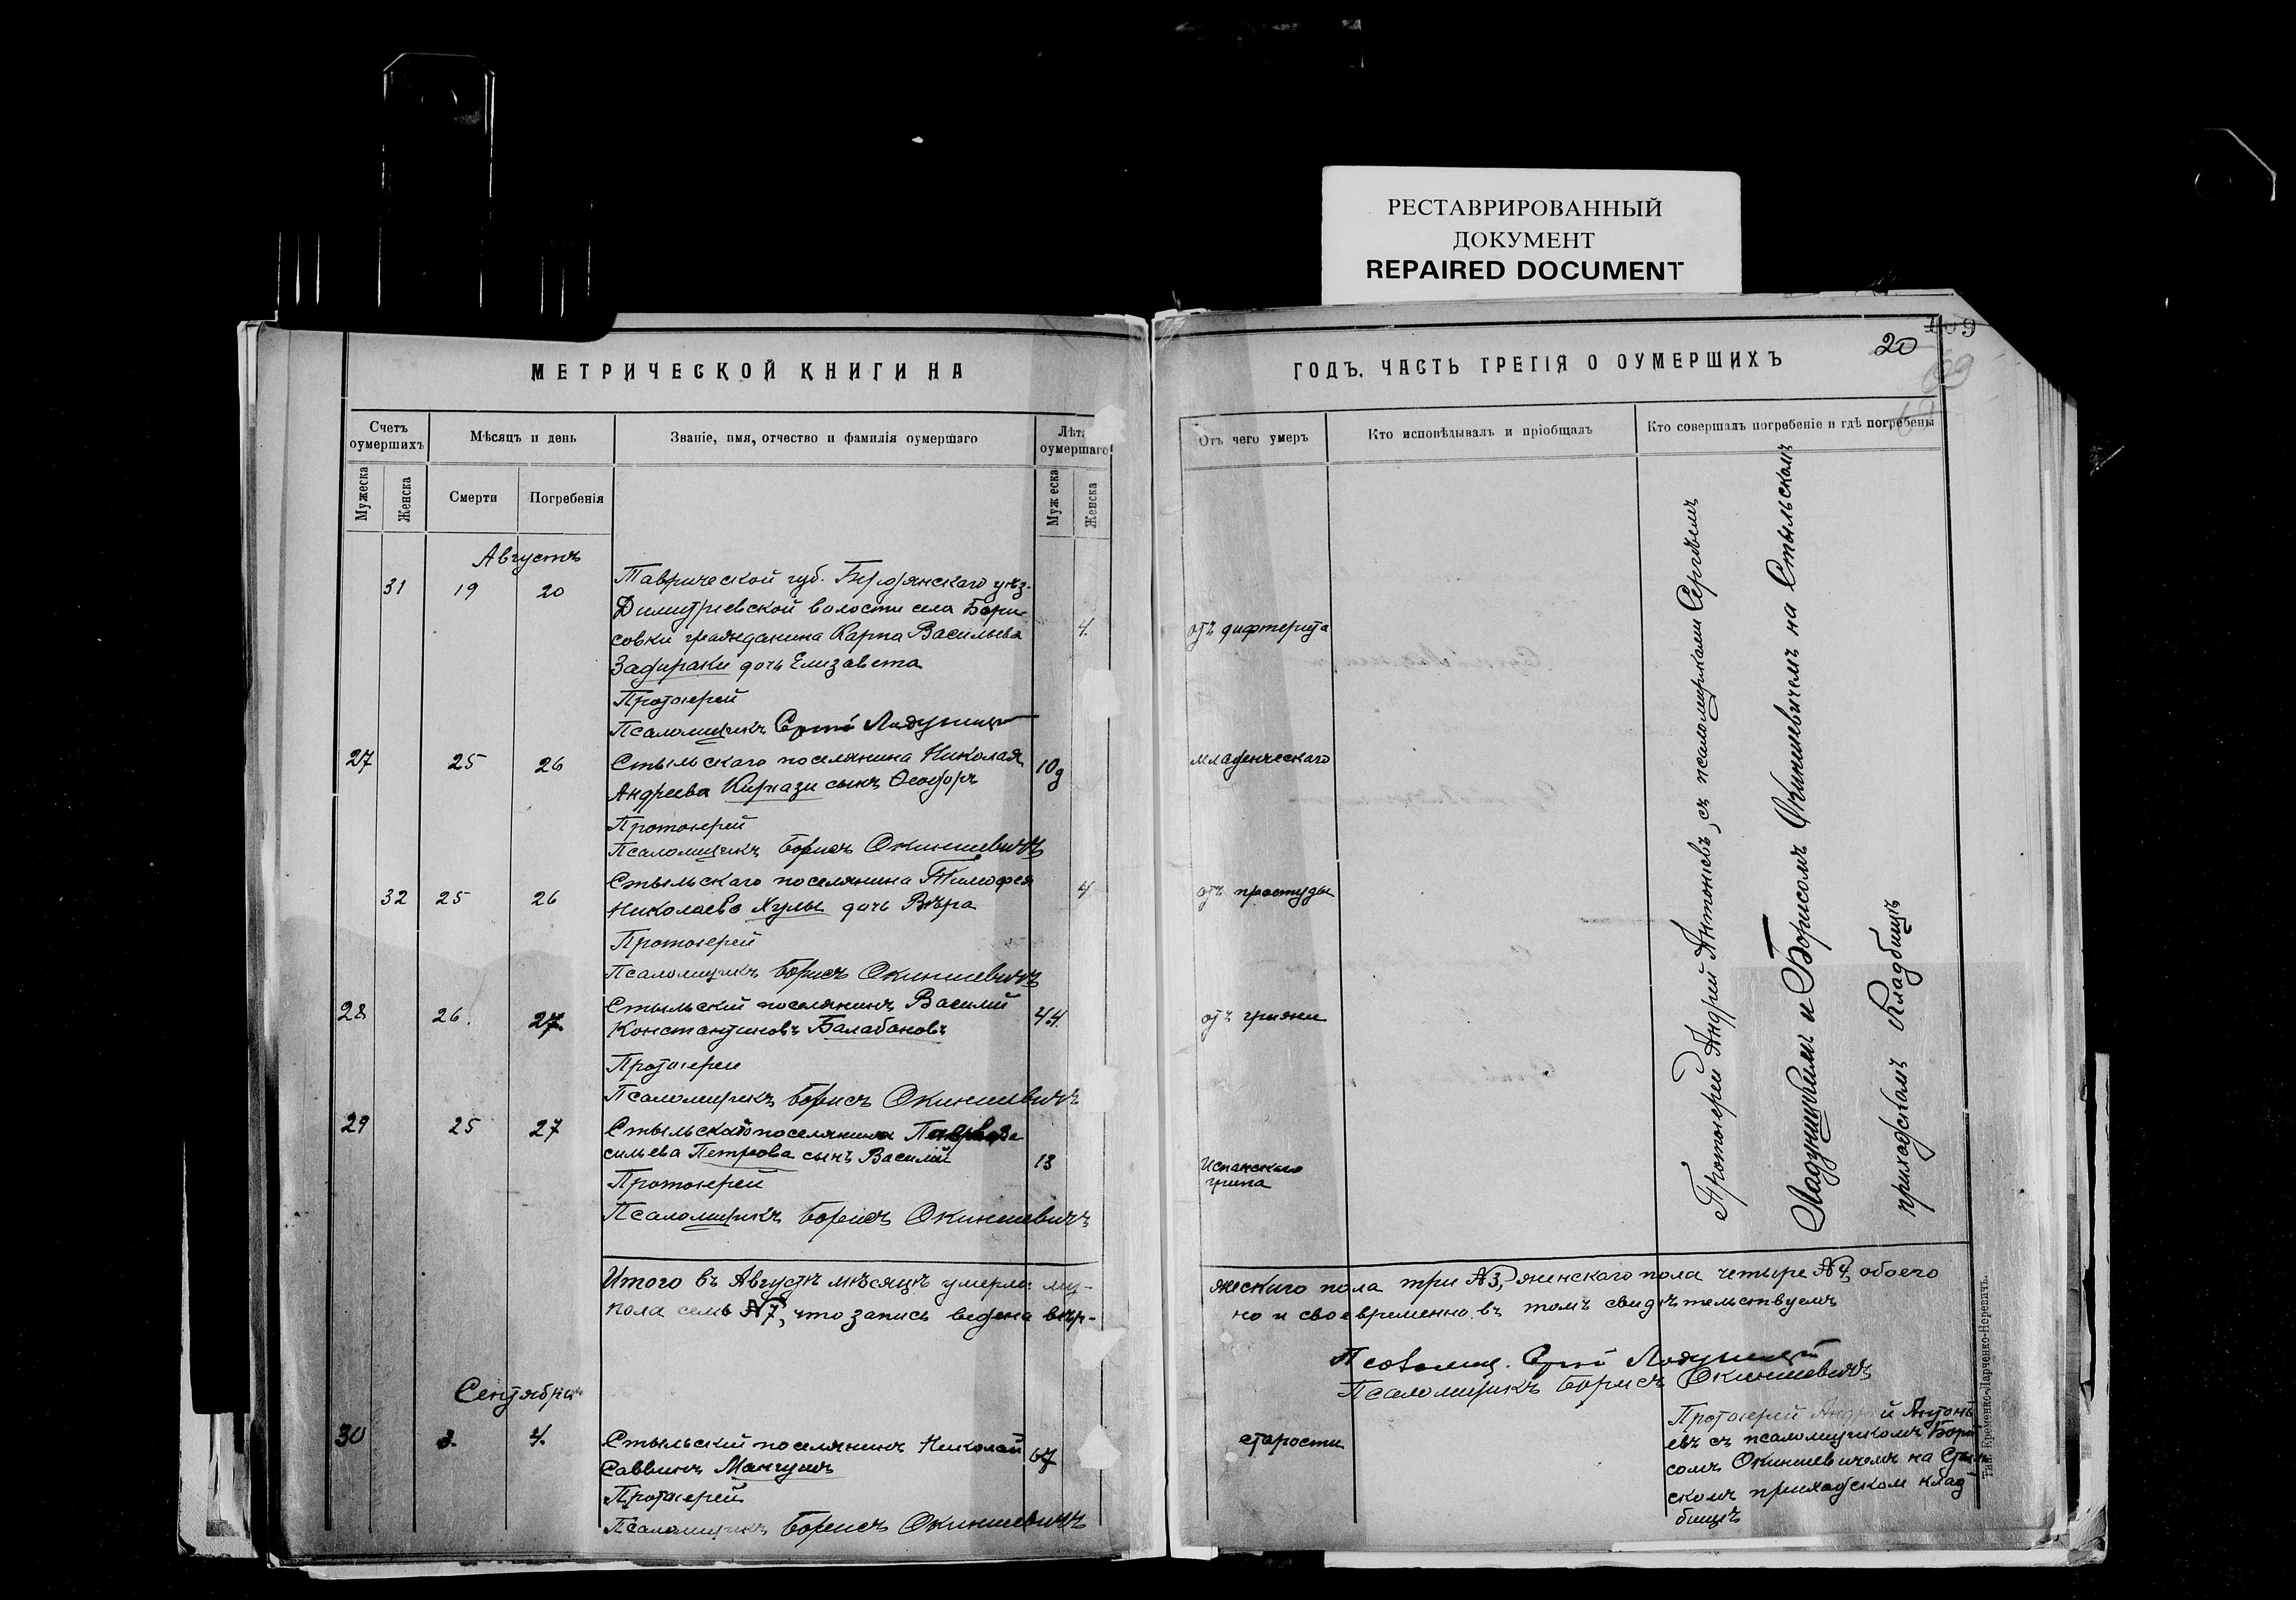 РЕСТАВРИРОВАННЫЙ
ДОКУМЕНТ
REPAIRED DOCUMENT
МЕТРИЧЕСКОЙ КНИГИ НА
Счетъ оумершихъ
Мѣсяцъ и день
Званіе, имя, отчество и фамилія оумершаго
Лѣта оумершаго
Мужеска
Женска
Смерти
Погребенія
Мужеска
Женска
Августъ
31 19 20 Таврической губ. Бердянскаго уѣз.
Димитріевской волости села Бори-
совки гражданина Карпа Васильева 4.
Задираки дочь Елизавета
Протоіерей
Псаломщикъ Сергій Ладушицій
27 25 26 Стыльскаго поселянина Николая 10д
Андреева Кирнази сынъ Ѳеодоръ
Протоіерей
Псаломщикъ Борисъ Окиншевичъ
32 25 26 Стыльскаго поселянина Тимофея 4
Николаева Хулы дочь Вѣра
Протоіерей
Псаломщикъ Борисъ Окиншевичъ
28 26. 27. Стыльскій поселянинъ Василій 44.
Константиновъ Балабановъ
Протоіереи
Псаломщикъ Борисъ Окиншевичъ
29 25 27 Стыльскаго поселянина
сильева Петрова сынъ Василій 13
Протоіерей
Псаломщикъ Борисъ Окиншевичъ
Итого въ Августѣ мѣсяцѣ умерло: му-
пола семь №7, что запись ведена вѣр-
Сентябрь
30 3. 4. Стыльскій поселянинъ Николай 67
Саввинъ Мангушъ
Протоіерей
Псаломщикъ Борисъ Окиншевичъ
20
109
69
ГОДЪ. ЧАСТЬ ТРЕТІЯ О ОУМЕРШИХЪ
Отъ чего умеръ
Кто исповѣдывалъ и пріобщалъ
Кто совершалъ погребеніе и гдѣ погребены
отъ дифтерита
младенческаго
отъ простуды
отъ грыжи
Испанскаго
грипа
Протоіерей Андрей Антоніевъ, съ псаломщиками Сергѣемъ
и Борисомъ Окиншевичемъ на Стыльскомъ
приходскомъ кладбищѣ
жескаго пола три №3, женскаго пола четыре №4, обоего
но и своевременно въ томъ свидѣтельствуемъ
Псаломщ. Сергій Ладушицій
Псаломщикъ Борисъ Окиншевичъ
старости
Протоіерей Андрей Антоні-
евъ съ псаломщикомъ Бори-
сомъ Окиншевичемъ на Стыль-
скомъ приходском клад-
бищѣ
Тип. Еременко-Ларченко-Неревичъ.